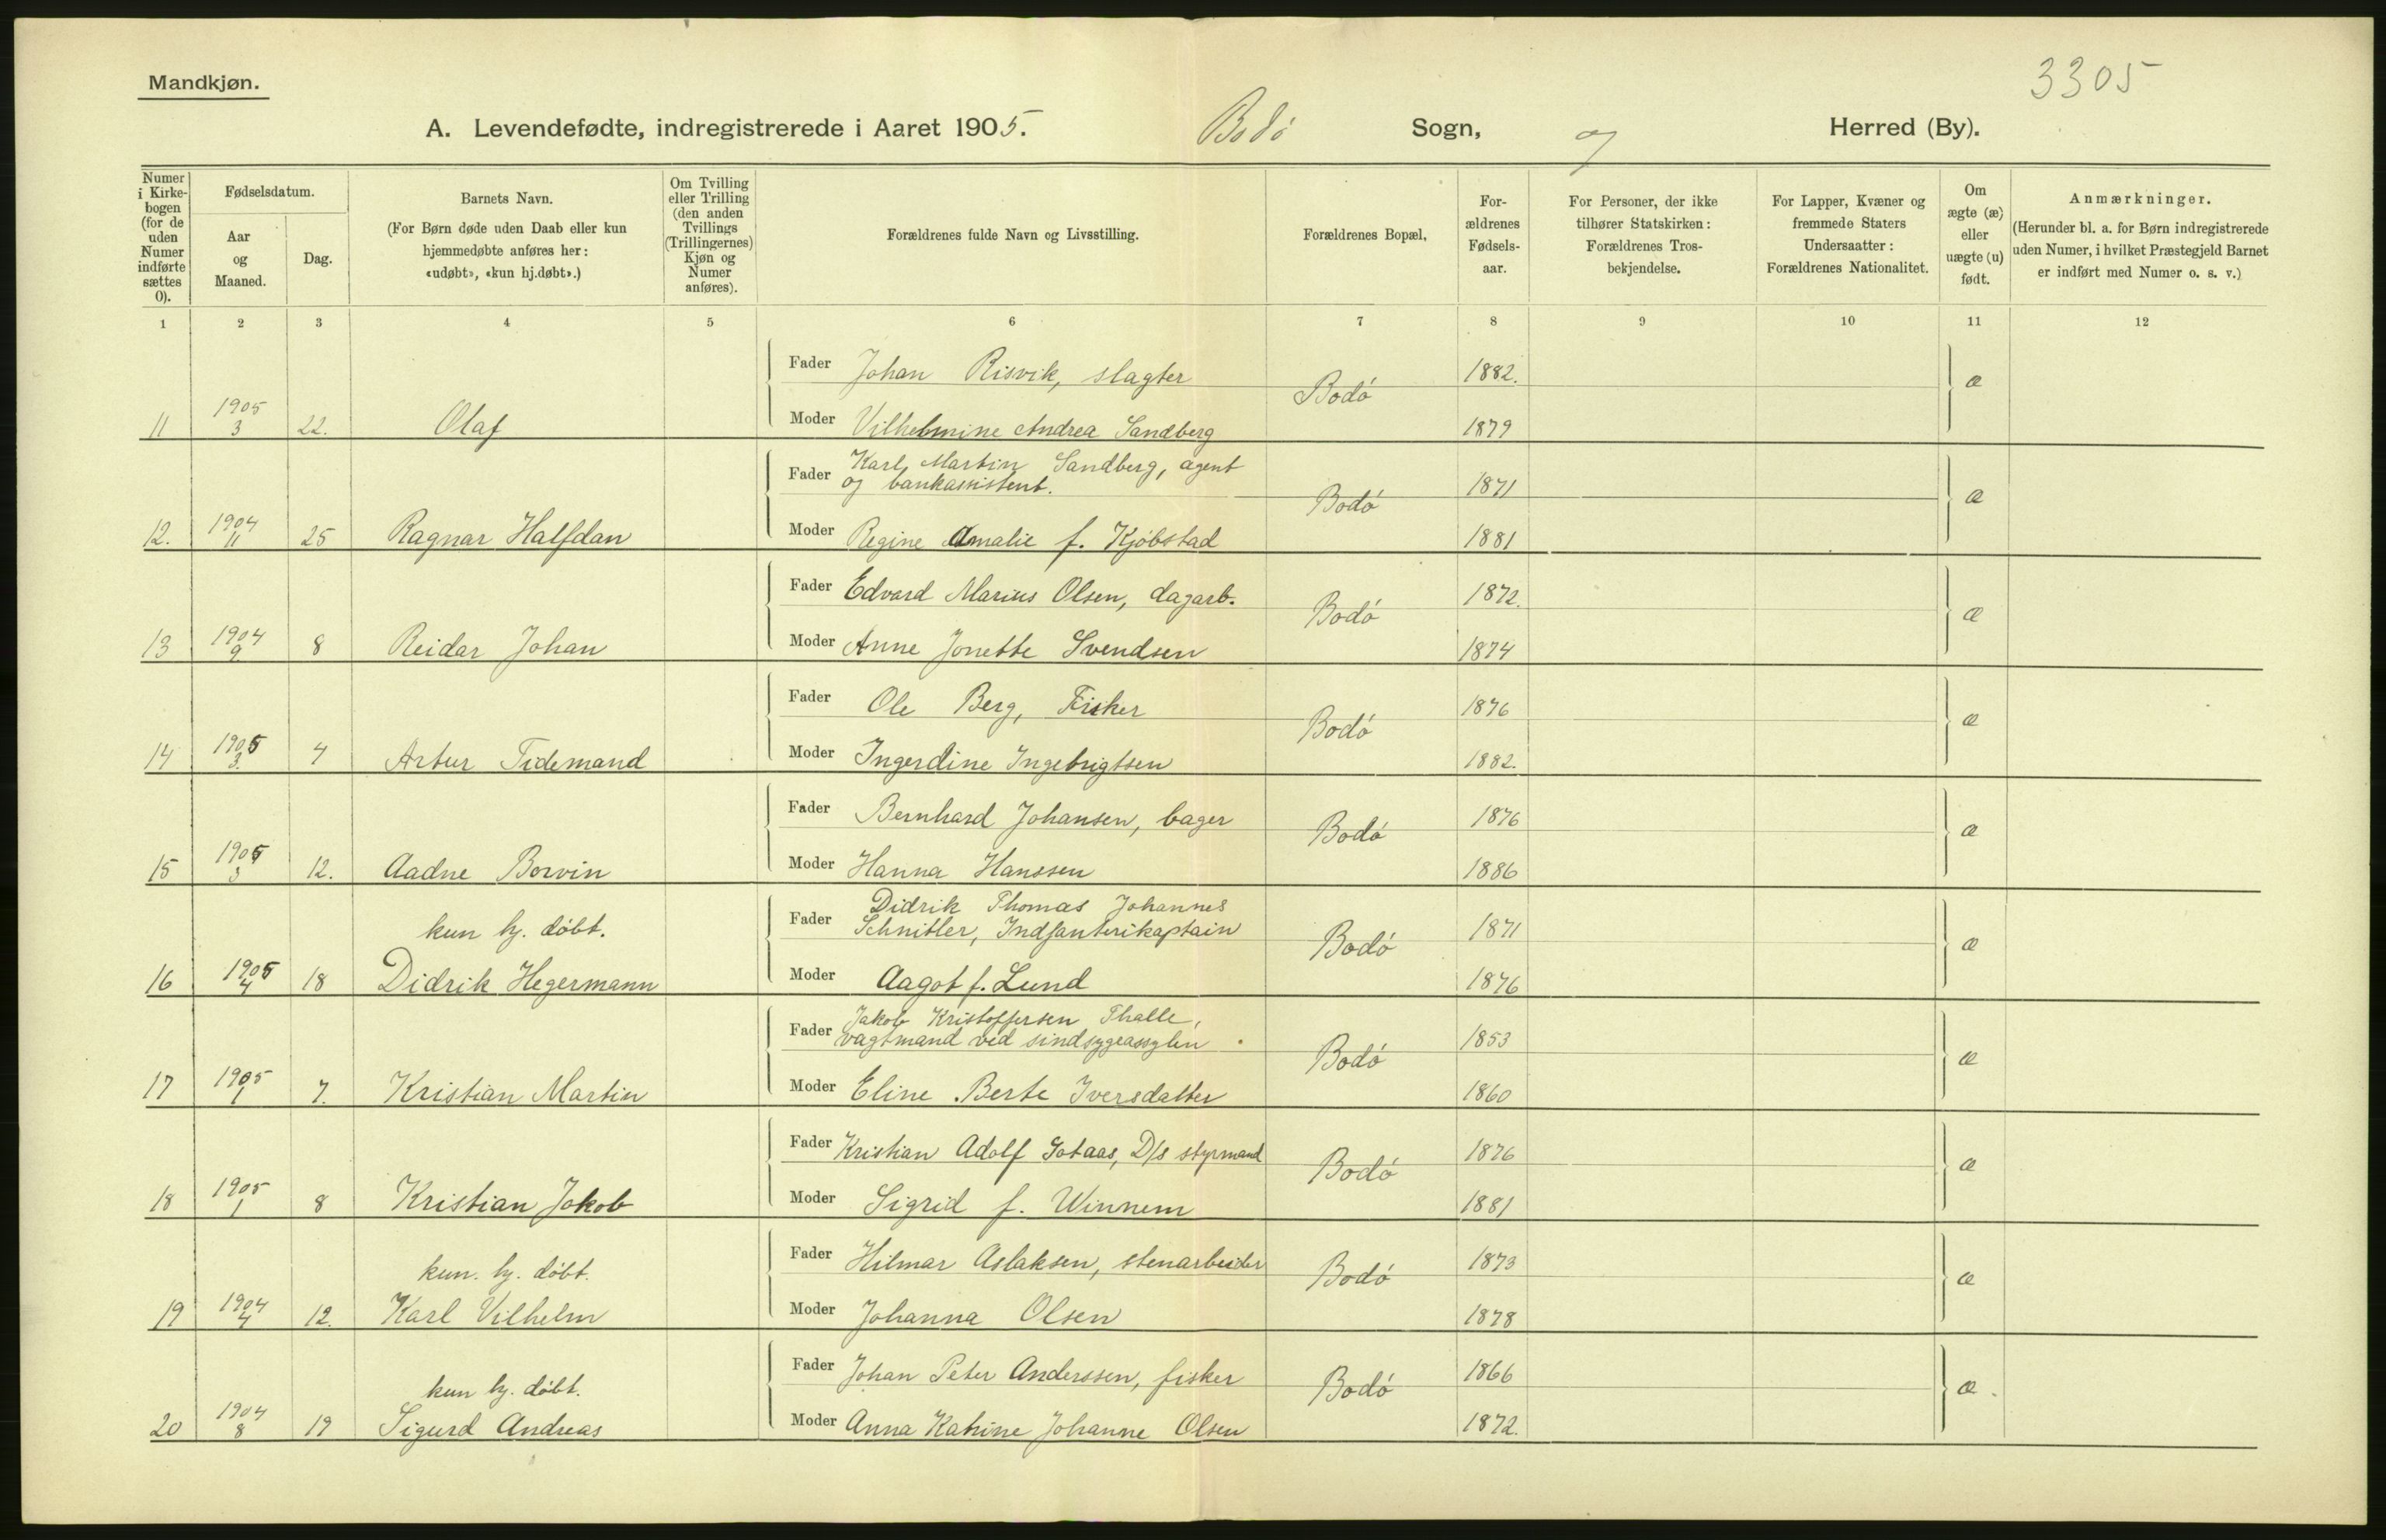 3305
Mandkjøn.
A. Levendefødte, indregistrerede i Aaret 1905. Bodó Sogn, og Herred (By).
Numer i Kirkebogen (for de uden Numer indførte sættes 0).
Fødselsdatum.
Aar og Maaned.
Dag.
Barnets Navn.
(For Børn døde uden Daab eller kun hjemmedøbte anføres her: «udøbt», «kun hj.døbt».)
Om Tvilling eller Trilling (den anden Tvillings (Trillingernes) Kjøn og Numer anføres).
Forældrenes fulde Navn og Livsstilling.
Forældrenes Bopæl,
For-ældrenes Fødsels-aar.
For Personer, der ikke tilhører Statskirken: Forældrenes Tros-bekjendelse.
For Lapper, Kvæner og fremmede Staters Undersaatter: Forældrenes Nationalitet.
Om ægte (æ) eller uægte (u) født.
Anmærkninger.
(Herunder bl. a. for Børn indregistrerede uden Numer, i hvilket Præstegjeld Barnet er indført med Numer o. s. v.)
1 2 3 4 5 6 7 8 9 10 11 12
Fader Johan Risvik, slagter Bodó 1882. æ
11 1905 3 22. Olaf Moder Vilhelmine Andrea Sandberg 1879
Fader Karl Martin Sandberg, agent
og bankassistent. Bodó 1871 æ
12. 1904 11 25 Ragnar Halfdan Moder Regine Amalie f. Kjóbstad 1881
Fader Edvard Marius Olsen, dagarb. Bodó 1872. æ
13 1904 9 8 Reidar Johan Moder Anne Jonette Svendsen 1874
Fader Ole Berg, Fisker Bodó 1876 æ
14 1905 3. 4 Artur Tidemand Moder Ingerdine Ingebrigtsen 1882.
Fader Bernhard Johansen, bager Bodó 1876 æ
15 1905 3 12. Aadne Borvin Moder Hanna Hanssen 1886
Fader Didrik Thomas Johannes
kun hj. dóbt. Schnitler, Indfanterikaptain Bodó 1871 æ
16 1905 4 18 Didrik Hegermann Moder Aagot f. Lund 1876
Fader Jakob Kristoffersen Thalle,
vagtmand ved sindsygeassylen Bodó 1853 æ
17 1905 1 7. Kristian Martin Moder Eline Berte Iversdatter 1860
Fader Kristian Adolf Gotaas, D/s styrmand Bodó 1876 æ
18 1905 1 8 Kristian Jakob Moder Sigrid f. Winnem 1881
kun. hj. dóbt. Fader Hilmar Aslaksen, stenarbeider Bodó 1873 æ
19 1904 4 12. Karl Vilhelm Moder Johanna Olsen 1878
kun hj. dóbt. Fader Johan Peter Anderssen, fisker Bodó 1866 æ.
20 1904 8 19 Sigurd Andreas Moder Anna Katrine Johanne Olsen 1872.